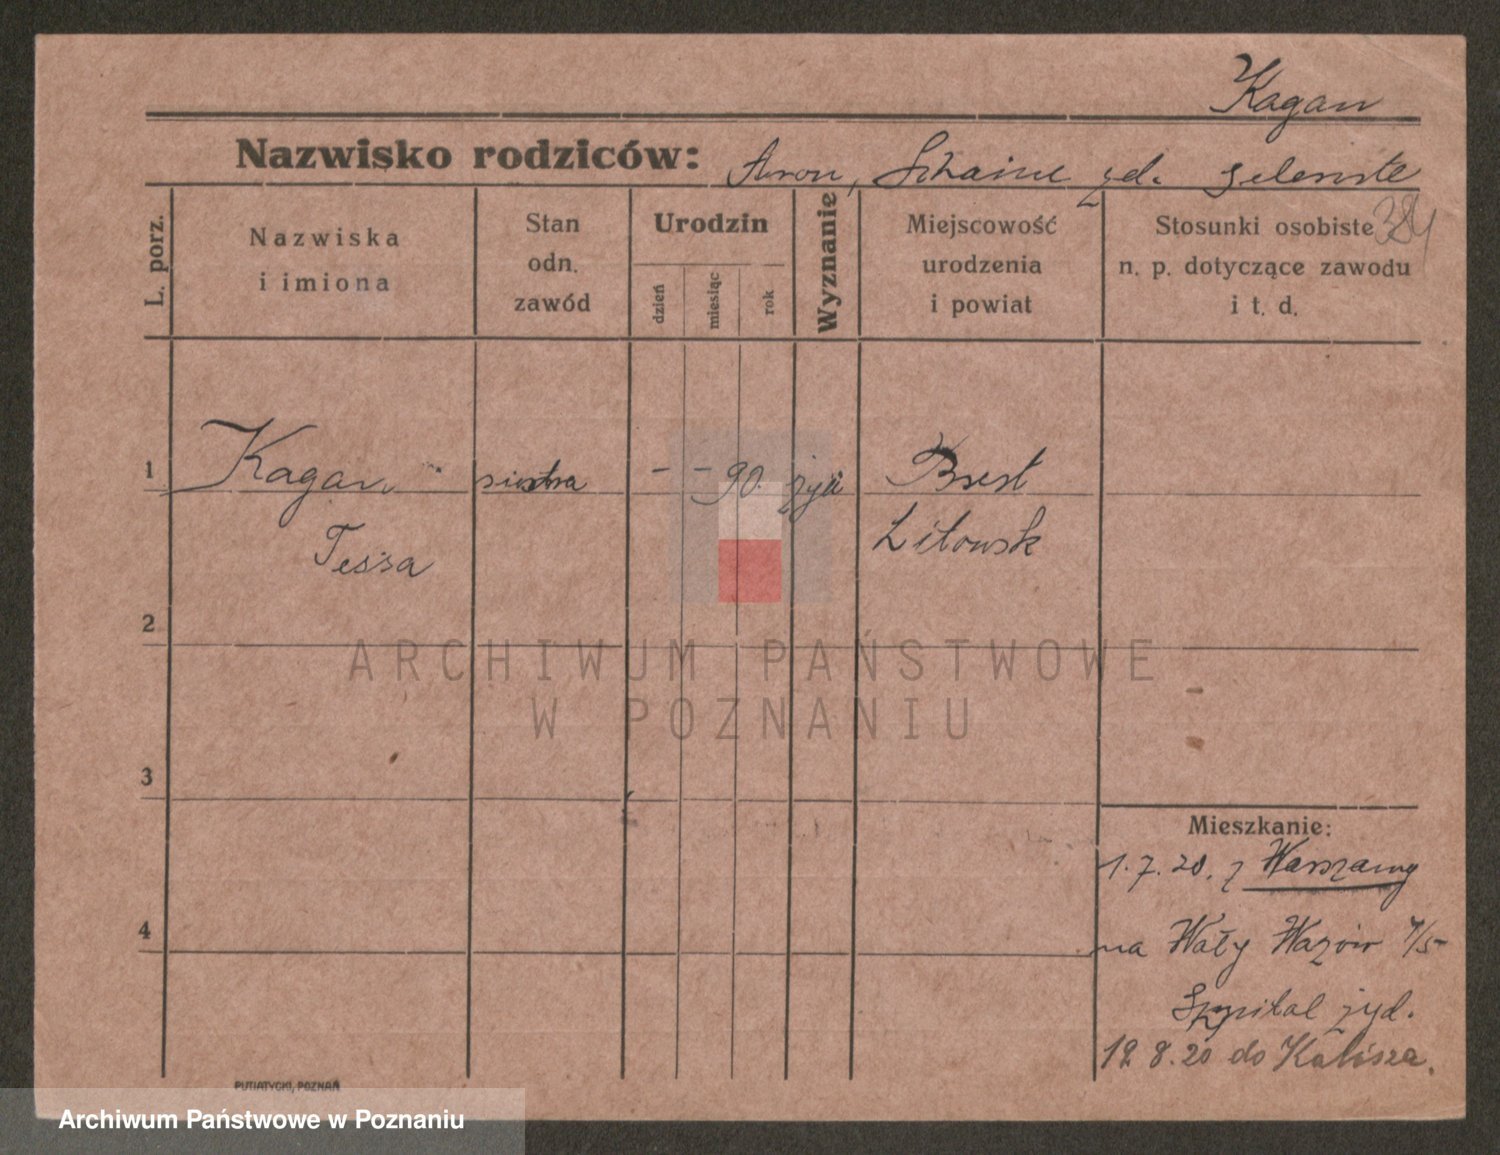 Kagan
Nazwisko rodziców: Aron,
384
L. porz.
Nazwiska i imiona
Stan odn. zawód
Urodzin
dzień
miesiąc
rok
Wyznanie
Miejscowość urodzenia i powiat
Stosunki osobiste n. p. dotyczące zawodu i t. d.
1 Kagan siostra - - 90. żyd Brest
Tessa Litowsk
2
ARCHIWUM PAŃSTWOWE
W POZNANIU
3
Mieszkanie:
1.7.20. z Warszawy
4
na Wały Wazów
Szpital żyd.
12 8.20 do Kalisza.
PUTIATYCKI, POZNAŃ
Archiwum Państwowe w Poznaniu